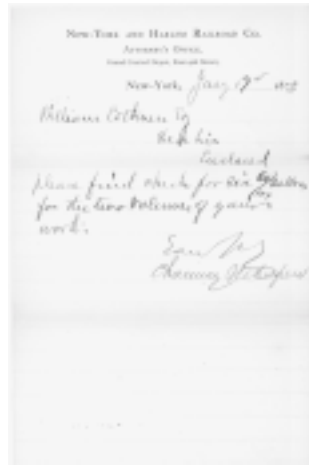 NEW-YORK AND HARLEM RAILROAD CO.
ATTORNEY'S OFFICE,
Grand Central Depot, Street,
NEW-YORK, Jany 19 18
William Cothren Esq
Dear Sir
Enclosed
please find check for six dollars
for the two volumes of your
work.
Yours
Chauncey M Depew